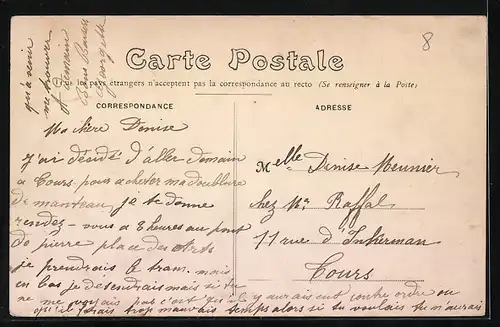 8
Carte Postale
Tous les pays étrangers n'acceptent pas la correspondance au recto (Se renseigner à la Poste)
CORRESPONDANCE
ADRESSE
Ma chère Denise
J'ai décidé d'aller demain
a Tours pour acheter ma doublure
de manteau, je te donne
rendez-vous a 8 heures au pont
de pierre place des Arts
je prendrais le tram. mais
en bas je descendrais mais si tu
ne me voyais pas c'est qu'il y aurait eut contre ordre ou
qu'il ferais trop mauvais temps alors si tu voulais tu n'aurais
qu'a venir
me trouver
A demain
Bons Baisers
Georgette
Melle Denise Meunier
chez Mr Raffal
11 rue d'Inkerman
Tours